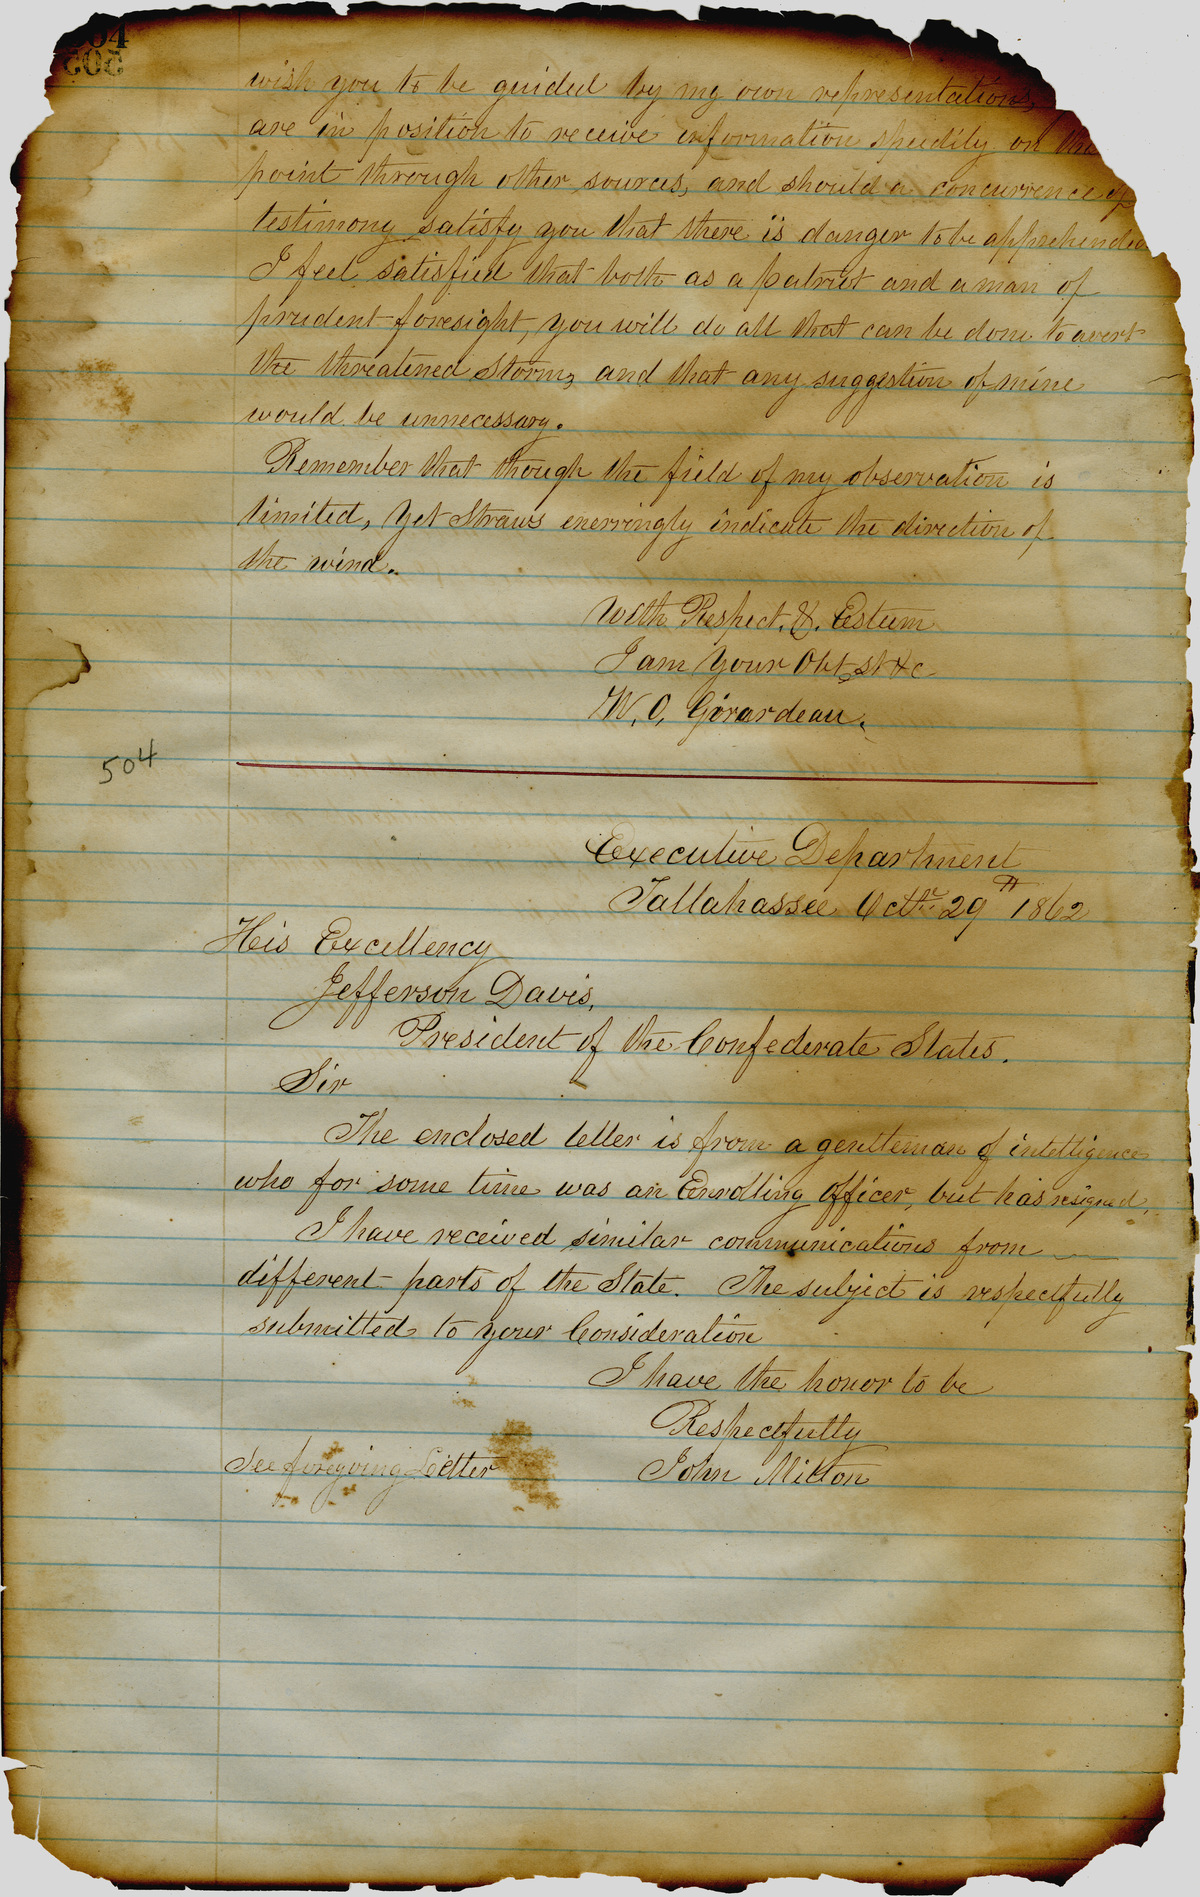 504
505
wish you to be guided by my own representations,
are in position to receive information speedily on the
point through other sources, and should a concurrence of
testimony satisfy you that there is danger to be apprehended
I feel satisfied that both as a patriot and a man of
prudent foresight, you will do all that can be done to avert
the threatened storm, and that any suggestion of mine
would be unnecessary.
Remember that though the field of my observation is
limited, yet straws enerringly indicate the direction of
the wind.
With Respect, &, Esteem
I am your Obt St &c
W. O, Girardeau.
504
Executive Department
Tallahassee Octr. 29th 1862
His Excellency
Jefferson Davis,
President of the Confederate States.
Sir
The enclosed letter is from a gentleman of intelligence
who for some time was an Enrolling officer, but has resigned.
I have received similar communications from
different parts of the State. The subject is respectfully
submitted to your Consideration
I have the honor to be
Respectfully
See foregoing Letter John Milton